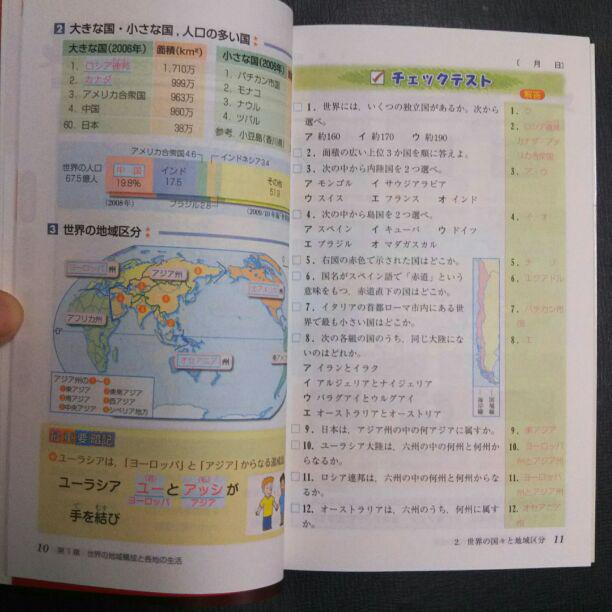 2 大きな国・小さな国，人口の多い国
大きな国(2006年) 面積(km²)
1. ロシア連邦 1,710万
2. カナダ 999万
3. アメリカ合衆国 963万
4. 中国 960万
60. 日本 38万
小さな国(2006年)
1. バチカン市国
2. モナコ
3. ナウル
4. ツバル
参考．小豆島(香川県)
アメリカ合衆国4.6
インドネシア3.4
世界の人口
67.5億人
中国
19.8%
インド
17.5
その他
ブラジル2.8
(2008年)
3 世界の地域区分
ヨーロッパ州
アジア州
アフリカ州
オセアニア州
0°
アジア州の
東アジア
東南アジア
南アジア
西アジア
中央アジア
シベリア地方
最重要暗記
ユーラシアは，「ヨーロッパ」と「アジア」からなる
ユーラシア ユーとアッシが
ヨーロッパ アジア
手を結び
10 第1章 世界の地域構成と各地の生活
( 月 日)
チェックテスト
解答
1．世界には，いくつの独立国があるか。次から
選べ。
ア 約160 イ 約170 ウ 約190
2．面積の広い上位3か国を順に答えよ。
3．次の中から内陸国を2つ選べ。
ア モンゴル イ サウジアラビア
ウ スイス エ フランス オ インド
4．次の中から島国を2つ選べ。
ア スペイン イ キューバ ウ ドイツ
エ ブラジル オ マダガスカル
5．右図の赤色で示された国はどこか。
6．国名がスペイン語で「赤道」という
意味をもつ，赤道直下の国はどこか。
7．イタリアの首都ローマ市内にある世
界で最も小さい国はどこか。
8．次の各組の国のうち，同じ大陸にな
いのはどれか。
ア イランとイラク
イ アルジェリアとナイジェリア
ウ パラグアイとウルグアイ
エ オーストラリアとオーストリア
9．日本は，アジア州の中の何アジアに属すか。
10．ユーラシア大陸は，六州の中の何州と何州か
らなるか。
11．ロシア連邦は，六州の中の何州と何州からな
るか。
12．オーストラリアは，六州のうち，何州に属す
か。
国境線
海岸線
1．ウ
2．ロシア連邦
カナダ・アメ
リカ合衆国
3．ア・ウ
4．イ・オ
5．チリ
6．エクアドル
7．バチカン市
国
8．エ
9．東アジア
10．ヨーロッパ
州とアジア州
11．ヨーロッパ
州とアジア州
12．オセアニア
州
2．世界の国々と地域区分 11